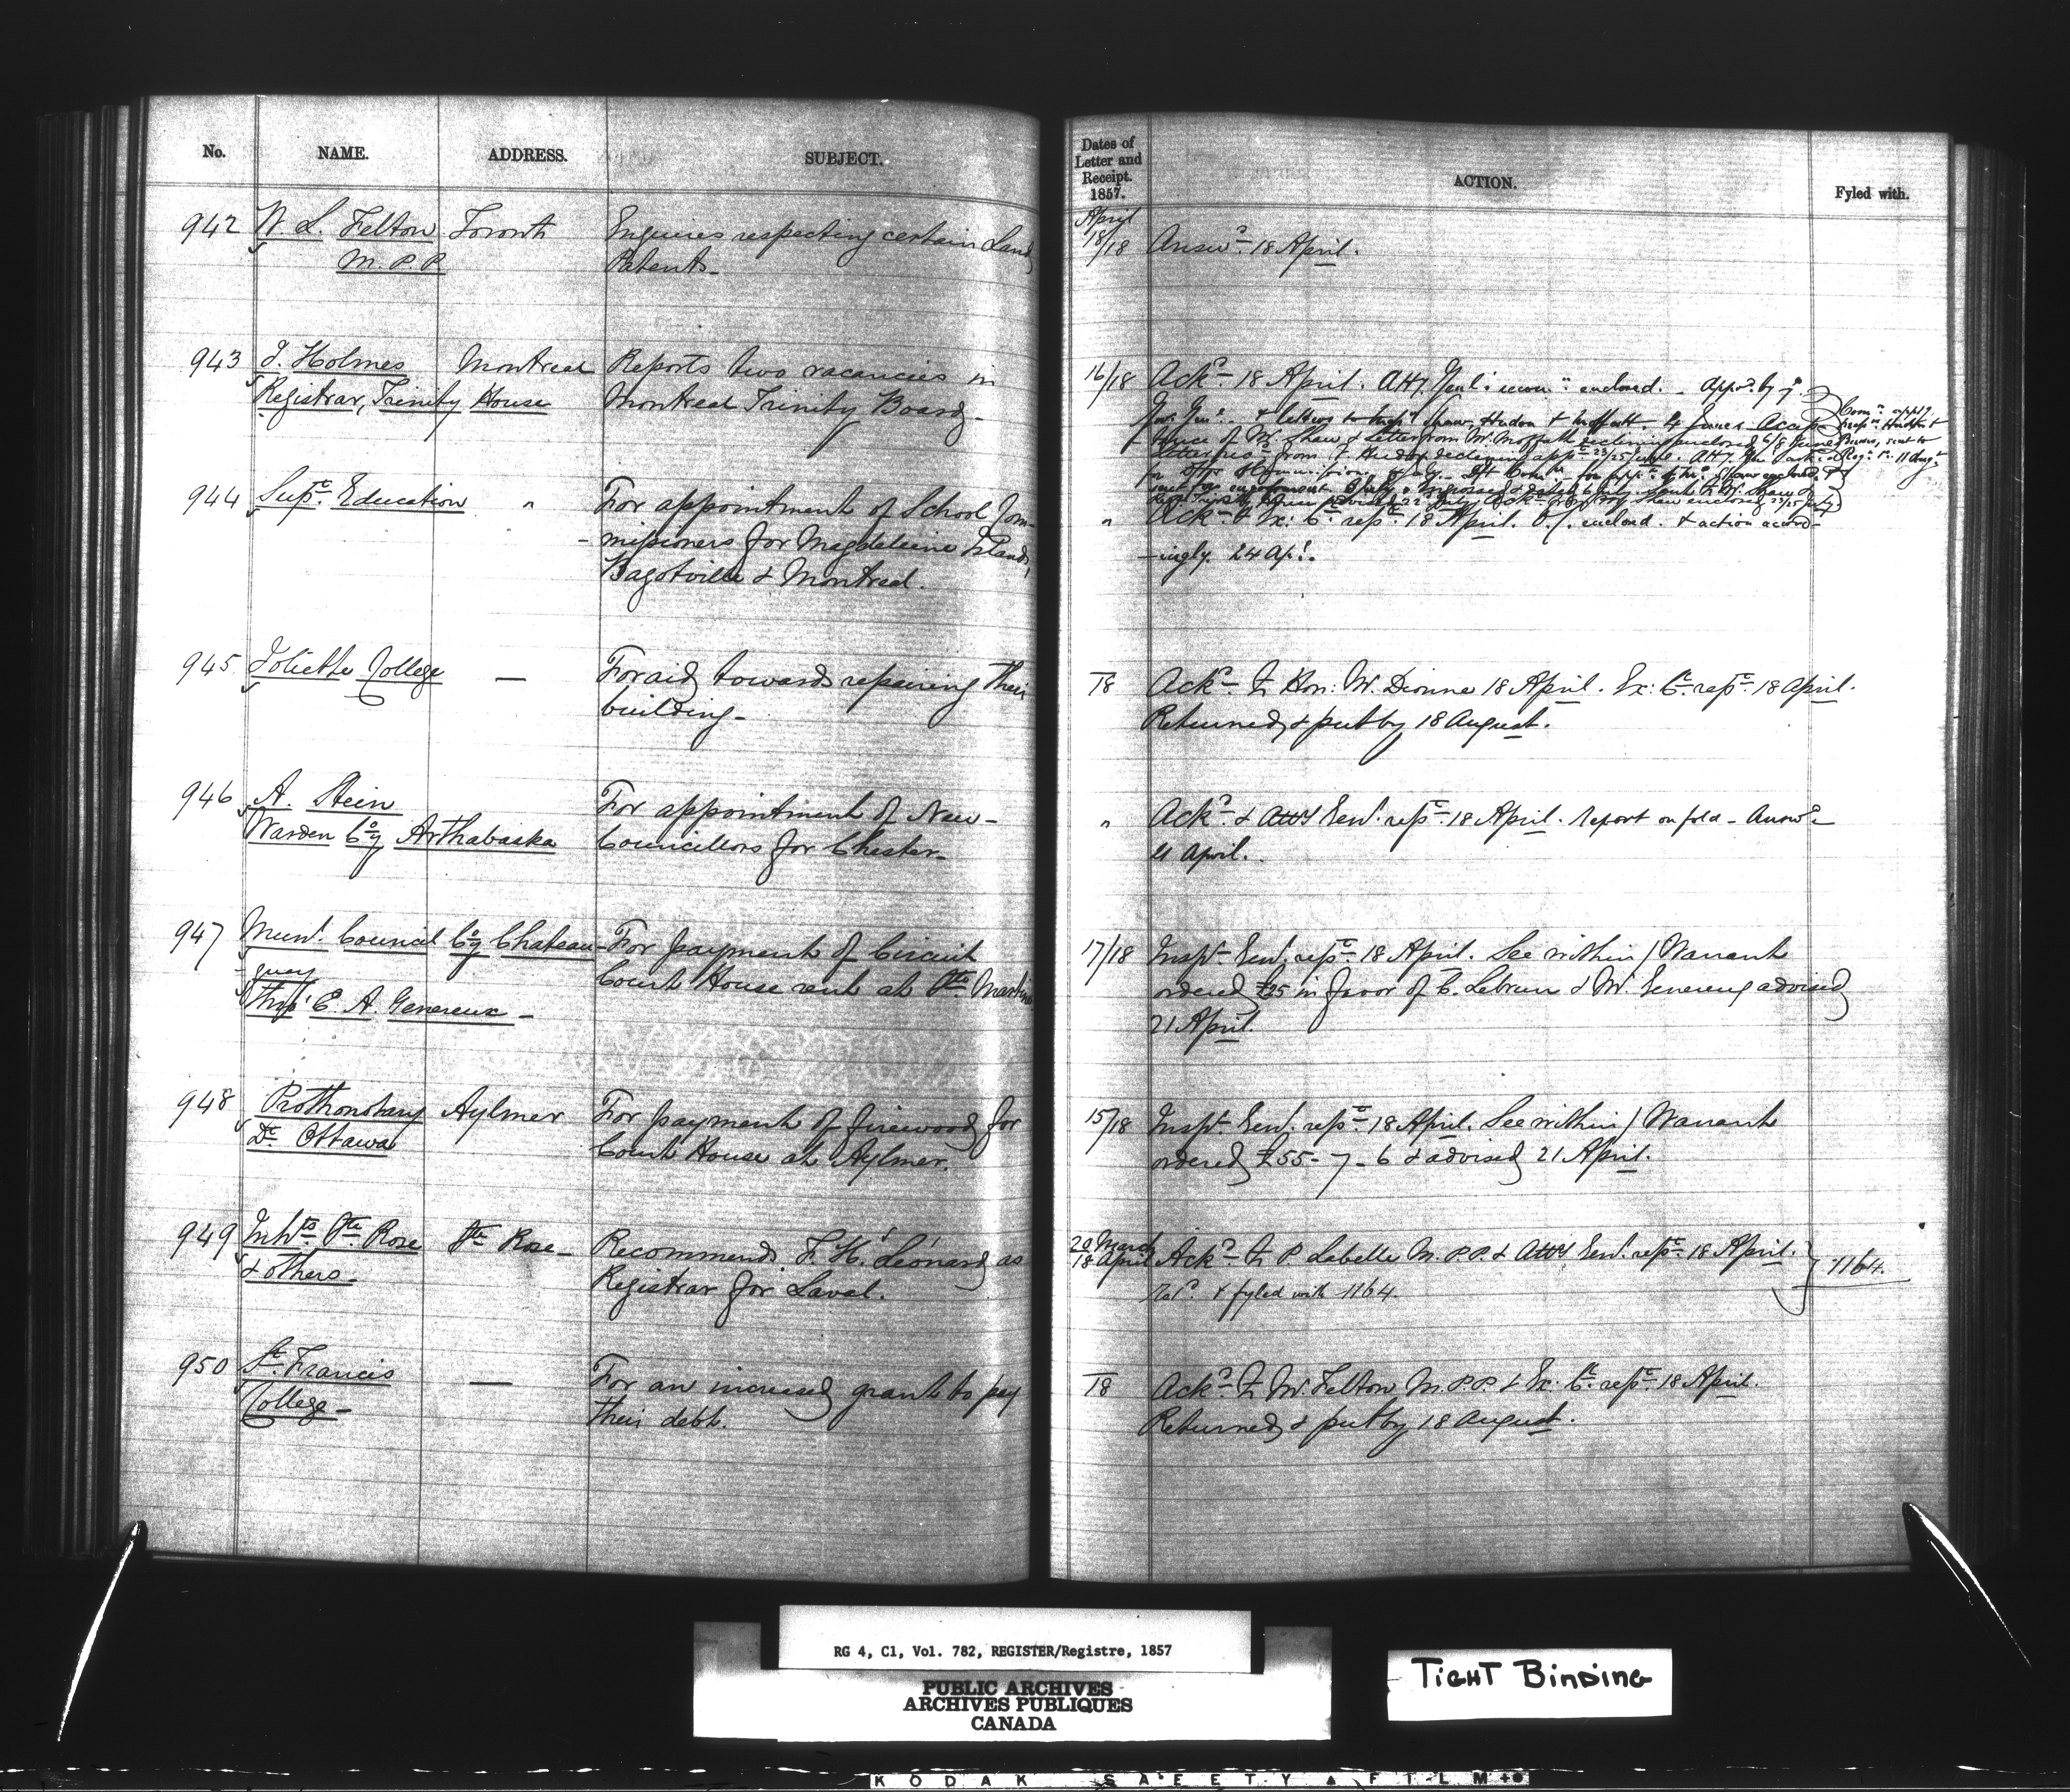 No. NAME. ADDRESS. SUBJECT.
942 W. L. Felton Toronto Enquires respecting certain Land
M.P.P. Patents.
943 J. Holmes Montreal Reports two vacancies in
Registrar, Trinity House Montreal Trinity Board
944 Supt. Education " For appointment of School Com-
-missioners for Magdeleine Islands,
Bagotville & Montreal.
945 Joliette College — For aid towards repairing their
building-
946 A. Stein For appointment of New-
Warden Coy Arthabaska Councillors for Chester-
947 Munl. Council Coy Chateau- For payment of Circuit
-guay Court House rent at Ste. Martine
Thro' E. A. Genereux -
948 Prothonotary Aylmer For payment of firewood for
Dt. Ottawa Court House at Aylmer.
949 Inhts. Ste. Rose Ste Rose- Recommend F. H. Léonard as
& others- Registrar for Laval.
950 St. Francis — For an increased grant to pay
College- their debt.
Dates of
Letter and
Receipt.
1857. ACTION. Fyled with.
April
18/18 Answd. 18 April.
16/18 Ackd. 18 April. Atty Genl's enclosed. Appd. by
4 June. Accep-
-tance of Mr. Shaw & Letter from Mr. Moffatt declining enclosed 6/8 June
" Ackd. & Ex: C. refd. 18 April. O/C. enclosd. & action accord-
-ingly. 24 Apl.
18 Ackd. to Hon: Mr. Dionne 18 April. Ex: C. refd. 18 April.
Returned & put by 18 August.
" Ackd. & Atty Genl. refd. 18 April. Report on fold - Answd.
21 April.
17/18 Inspr. Genl. refd. 18 April. See within / Warrant
ordered £25 in favor of C. Lebrun & Mr. Genereux advised
21 April.
15/18 Inspr. Genl. refd. 18 April. See within / Warrant
ordered £55-7-6 & advised 21 April.
20 March
18 April Ackd. to P. Labelle M.P.P. & Atty Genl. refd. 18 April. 1164.
Retd. & fyled with 1164.
18 Ackd. to W. Felton M.P.P. & Ex. C. refd. 18 April.
Returned & put by 18 August.
RG 4, C1, Vol. 782, REGISTER/Registre, 1857
PUBLIC ARCHIVES
ARCHIVES PUBLIQUES
CANADA
TIGHT BINDING
KODAK SAFETY FILM